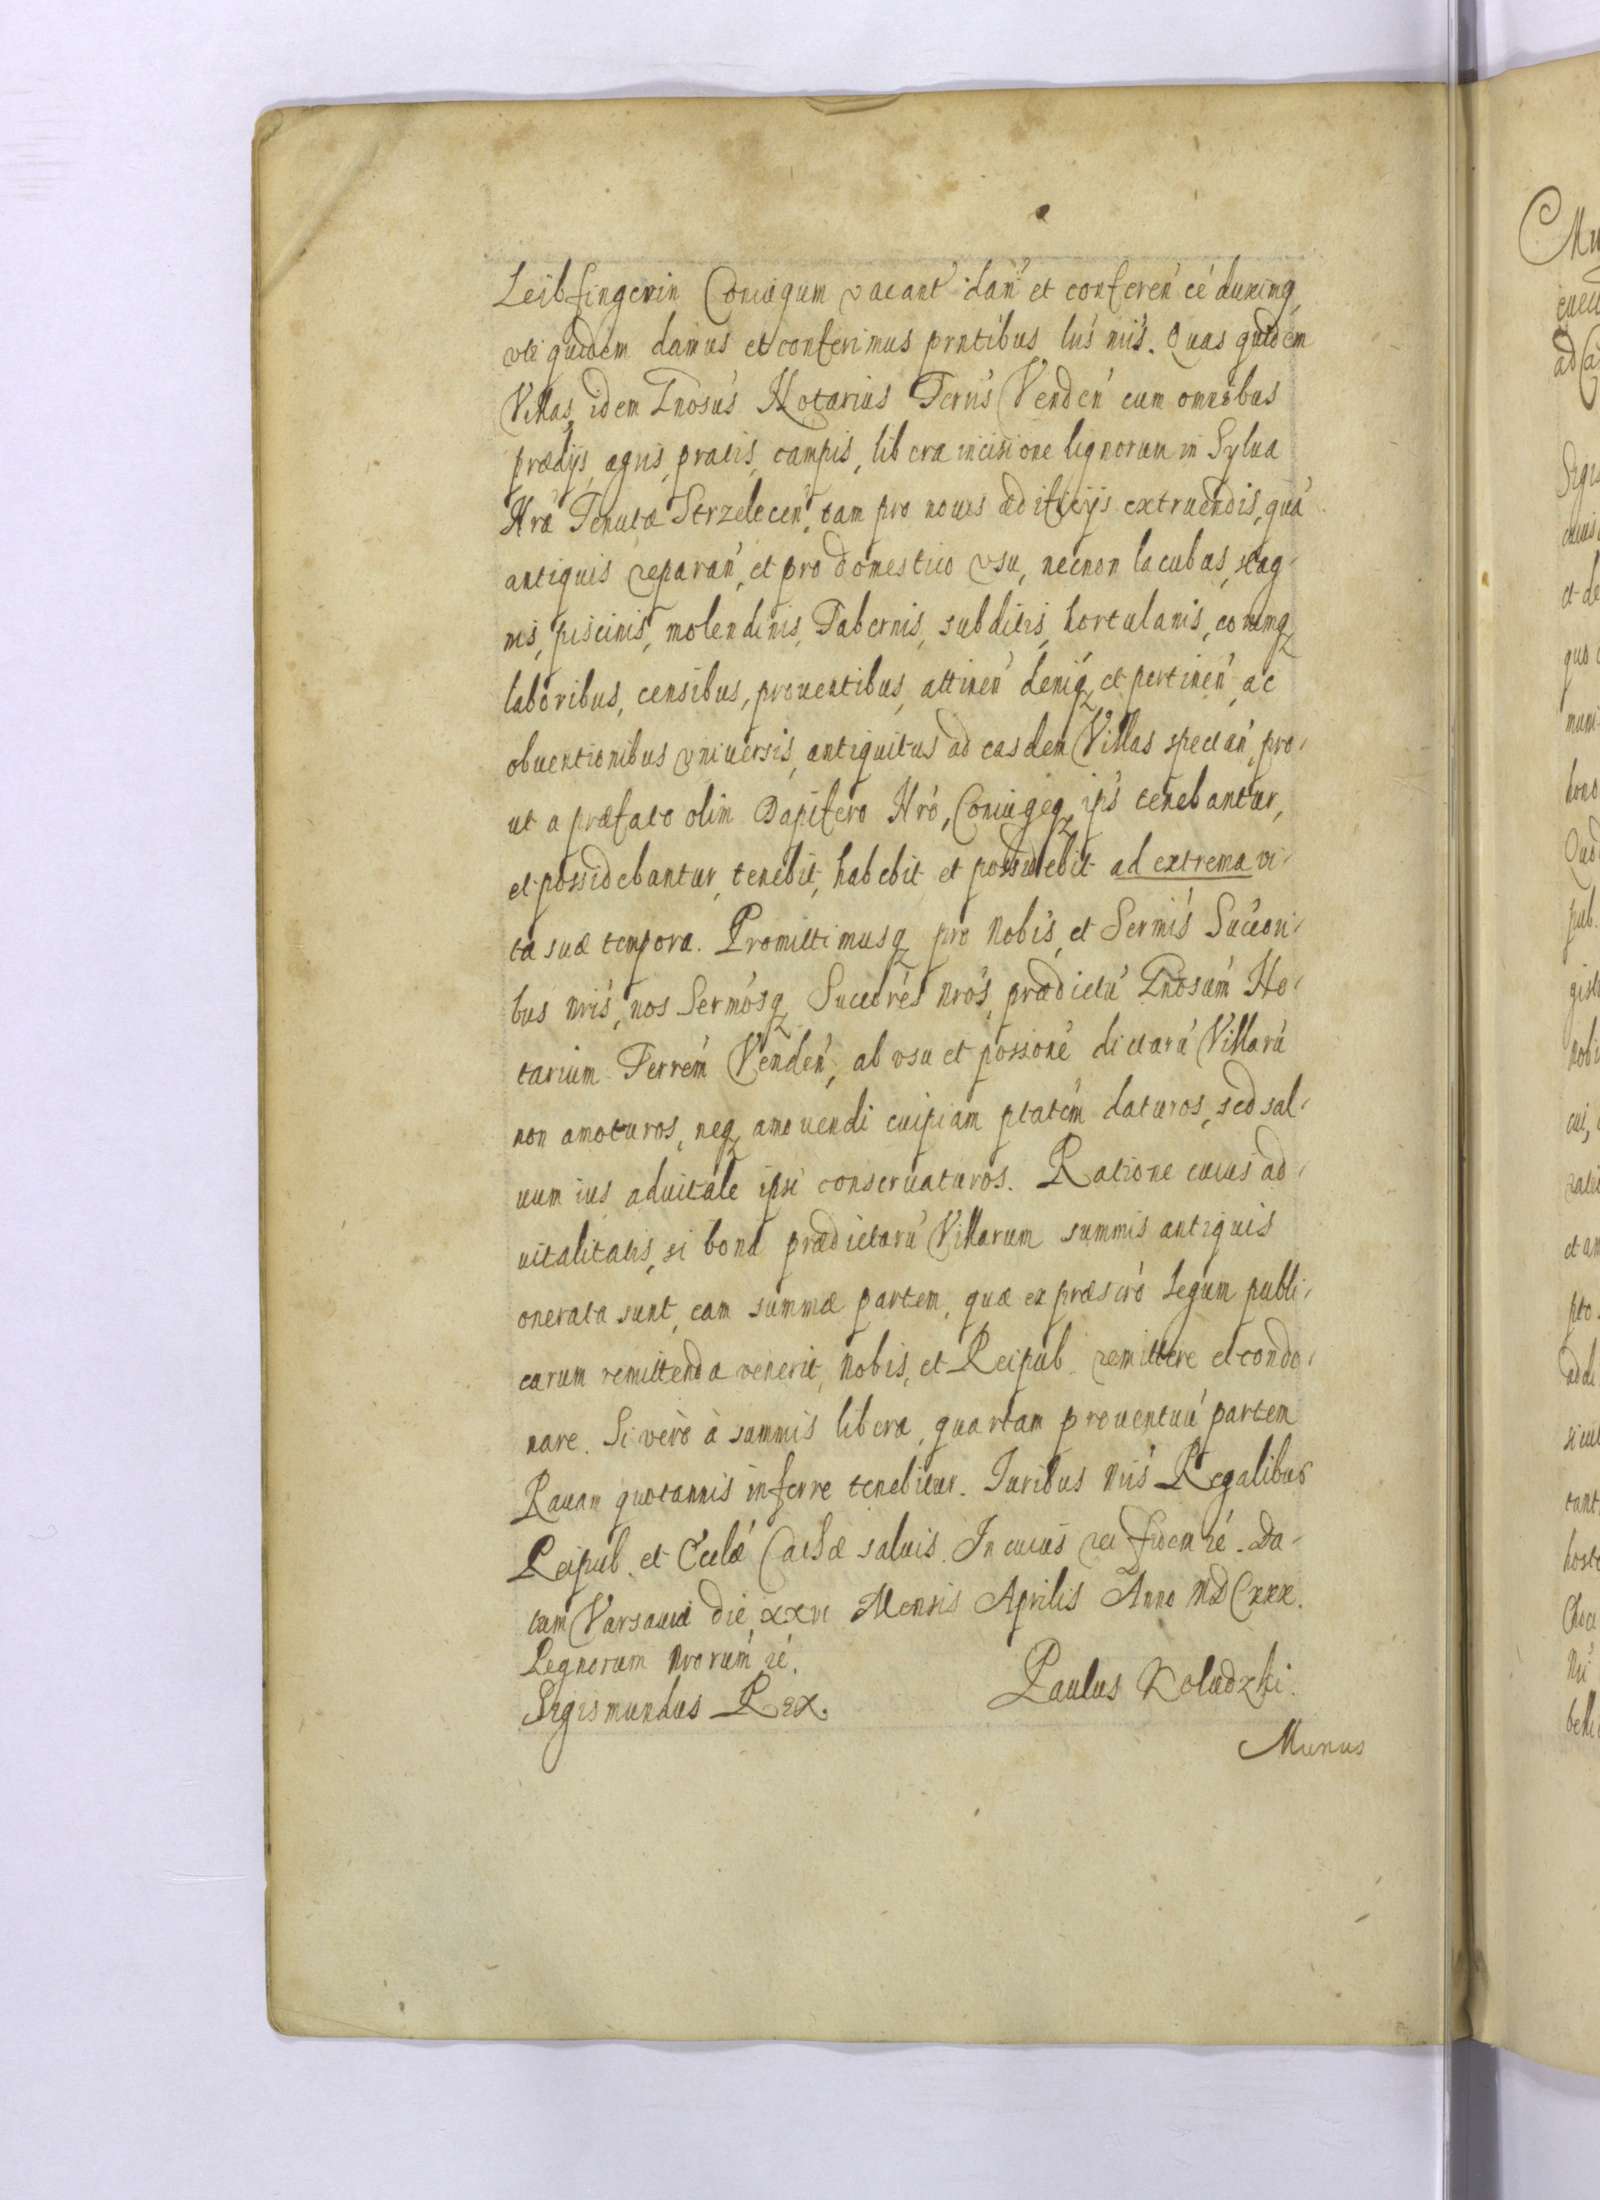 Leibfingerin Coniugum vacant' dan' et conferen' eé duximq
vti quidem damus et conferimus prntibus lrís nrís. Quas quidem
Villas, idem Gnosus Notarius Terrís Venden' cum omnibus
prædijs, agris, pratis, campis, libera incisione lignorum in Sylua
Nræ Tenutæ Strzelecen', tam pro nouis ædificijs extruendis, quá
antiquis reparan', et pro domestico vsu, necnon lacubus, stag-
nis, piscinis, molendinis, Tabernis, subditis, hortulanis, eorumq
laboribus, censibus, prouentibus, attinen' deniq, et pertinen', ac
obuentionibus vniuersis, antiquitus ad easdem Villas spectan', pro-
ut a præfato olim Dapifero Nró, Coniugeq, ips' tenebantur,
et possidebantur, tenebit, habebit et possidebit ad extrema vi-
tæ suæ tempora. Promittimusq pro Nobis, et Sermís Succori-
bus nrís, nos Sermósq Succórés Nrós, prædictú Gnosum No-
tarium Terrém Venden', ab vsu et possioné dictarú Villarú
non amoturos, neq amouendi cuipiam ptatém daturos, sed sal-
uum ius aduitale ipsi conseruaturos. Ratione cuius ad-
uitalitatis, si bona prædictarú Villarum summis antiquis
onerata sunt, eam summæ partem, quæ ex præscró Legum publi-
carum remittenda venerit, Nobis, et Reipub. remittere et condo-
nare. Si vèrò à summis libera, quartam prouentuú partem
Rauam quotannis inferre tenebitur. Iuribus nrís Regalibus
Reipub. et Ecclæ Cathæ saluis. In cuius rei fidem ré. Da-
tum Varsauiæ die xxvi Mensis Aprilis Anno MDCxxx.
Regnorum Nrorúm ré.
Sigismundus Rex. Paulus Koludzki.
Munus